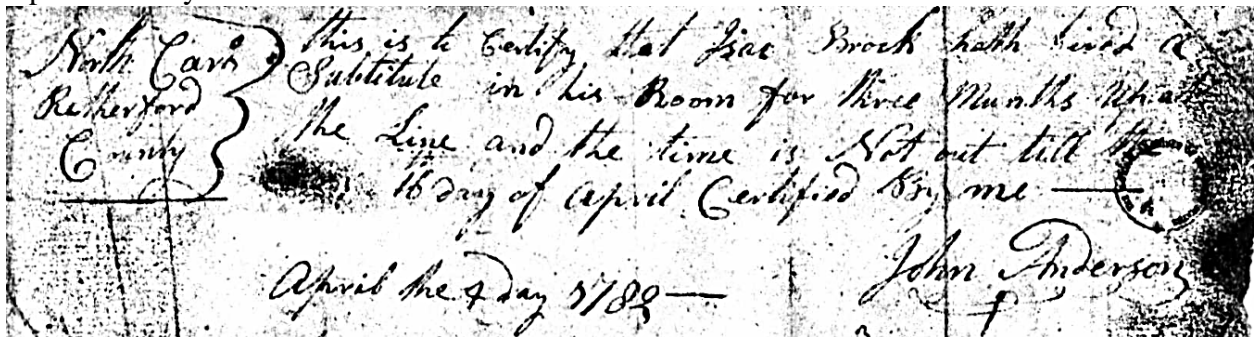 North Caro
Retherford
County
this is to Certify that Isac Brock hath hired a
Subtitute in his Room for three Munths upon
the Line and the time is Not out till the
16 day of april Certified By me
John Anderson
April the 4 day 1782